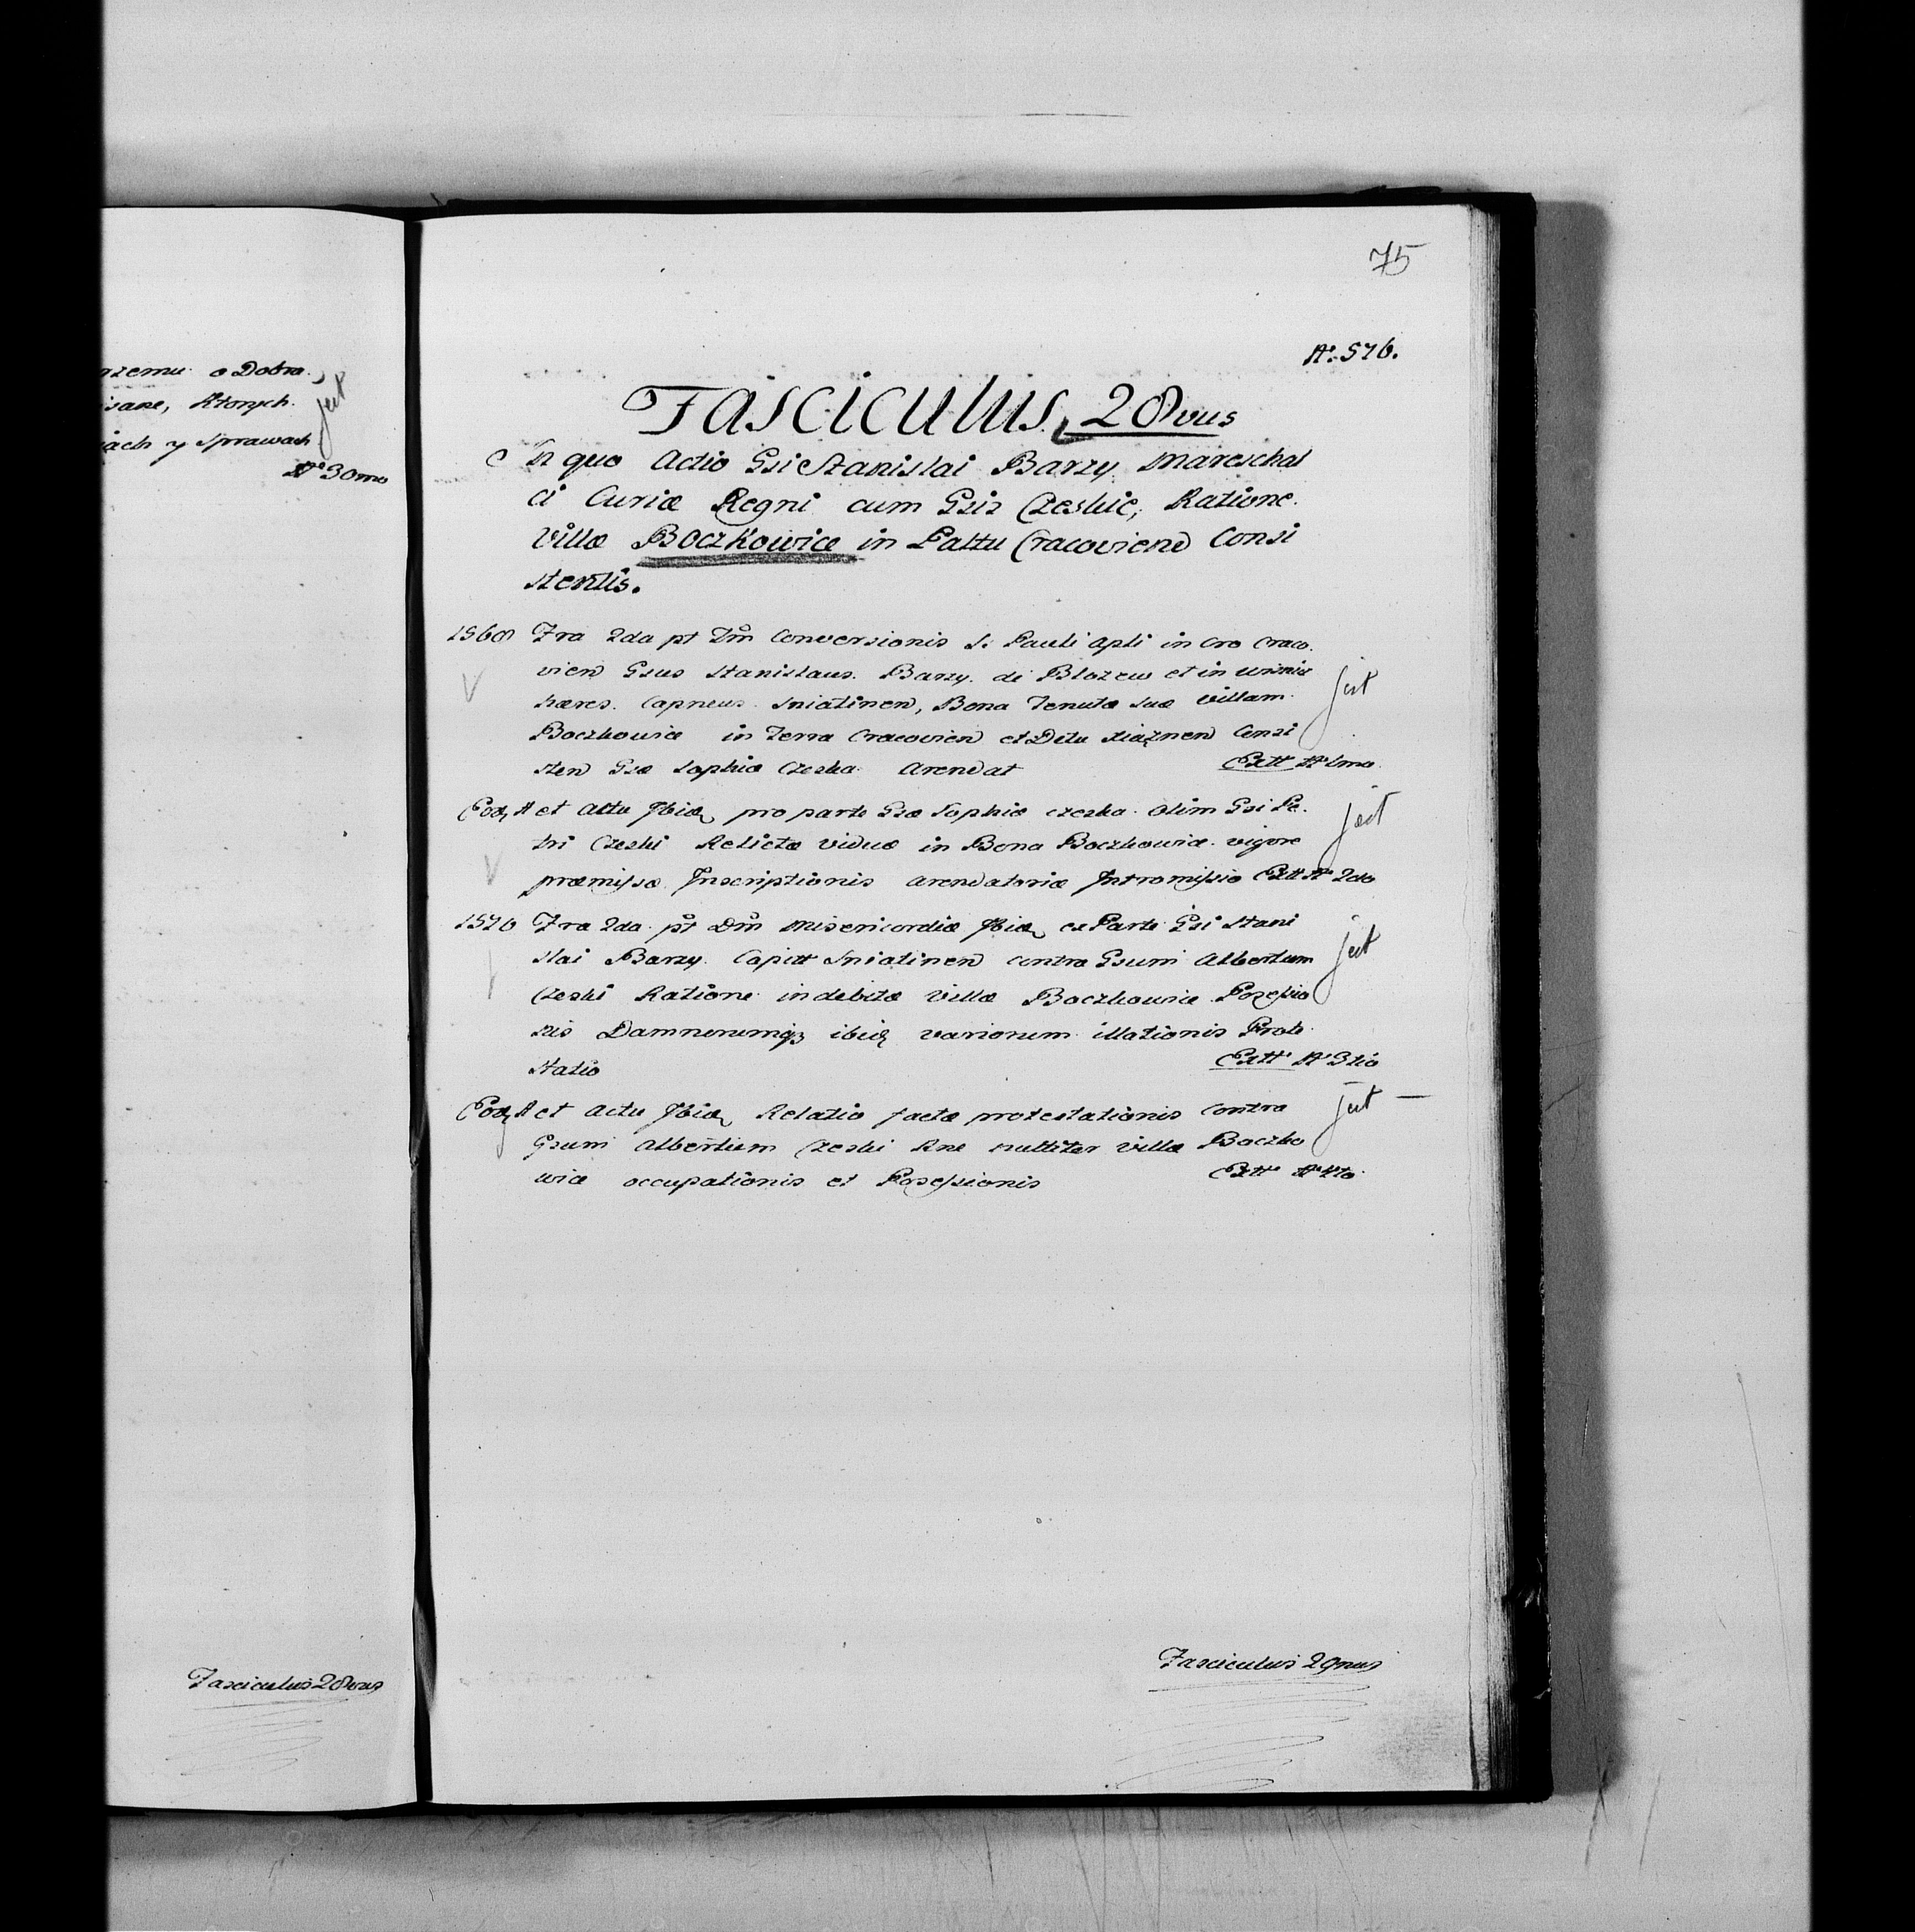 rzemu o Dobra
isane, Ktorych
iach y Sprawach
jest
No 30mo
Fasciculus 28vus
75
No. 576.
Fasciculus 28vus
In quo Actio Gsi Stanislai Barzy Mareschal
ci Curiæ Regni cum Gsis Czeskie, Ratione
Villæ Boczkowice in Pattu Cracoviens Consi
stentis.
1568 Fra 2da pt Dm Conversionis S. Pauli Apli in Cro Craco
vien Gsus Stanislaus Barzy de Blozew et in
hæres Capneus Sniatinen, Bona Tenutæ suæ villam
jest
Boczkowice in Terra Cracovien et Dctu Xiąznen Consi
sten Gsæ Sophiæ Czeska Arendat Extt No 1mo
Eod A et Actu Ibid pro parte Gsæ Sophiæ Czeska olim Gsi Pe
jest
tri Czeski Relictæ Viduæ in Bona Boczkowice vigore
præmissæ Inscriptionis arendatoriæ Intromissio Extt No 2do
1570 Fra 2da pt Dm Misericordiæ Ibid ex Parte Gsi Stani
slai Barzy Capitt Sniatinen contra Gsum Albertum
jest
Czeski Ratione indebitæ Villæ Boczkowice Possessio
nis Damnorumq ibid variorum illationis Prote
statio Extt No 3tio
Eod A et Actu Ibid Relatio factæ protestationis contra
jest
Gsum Albertum Czeski Rne nulliter villæ Boczko
wice occupationis et Possessionis Extt No 4to
Fasciculus 29nus